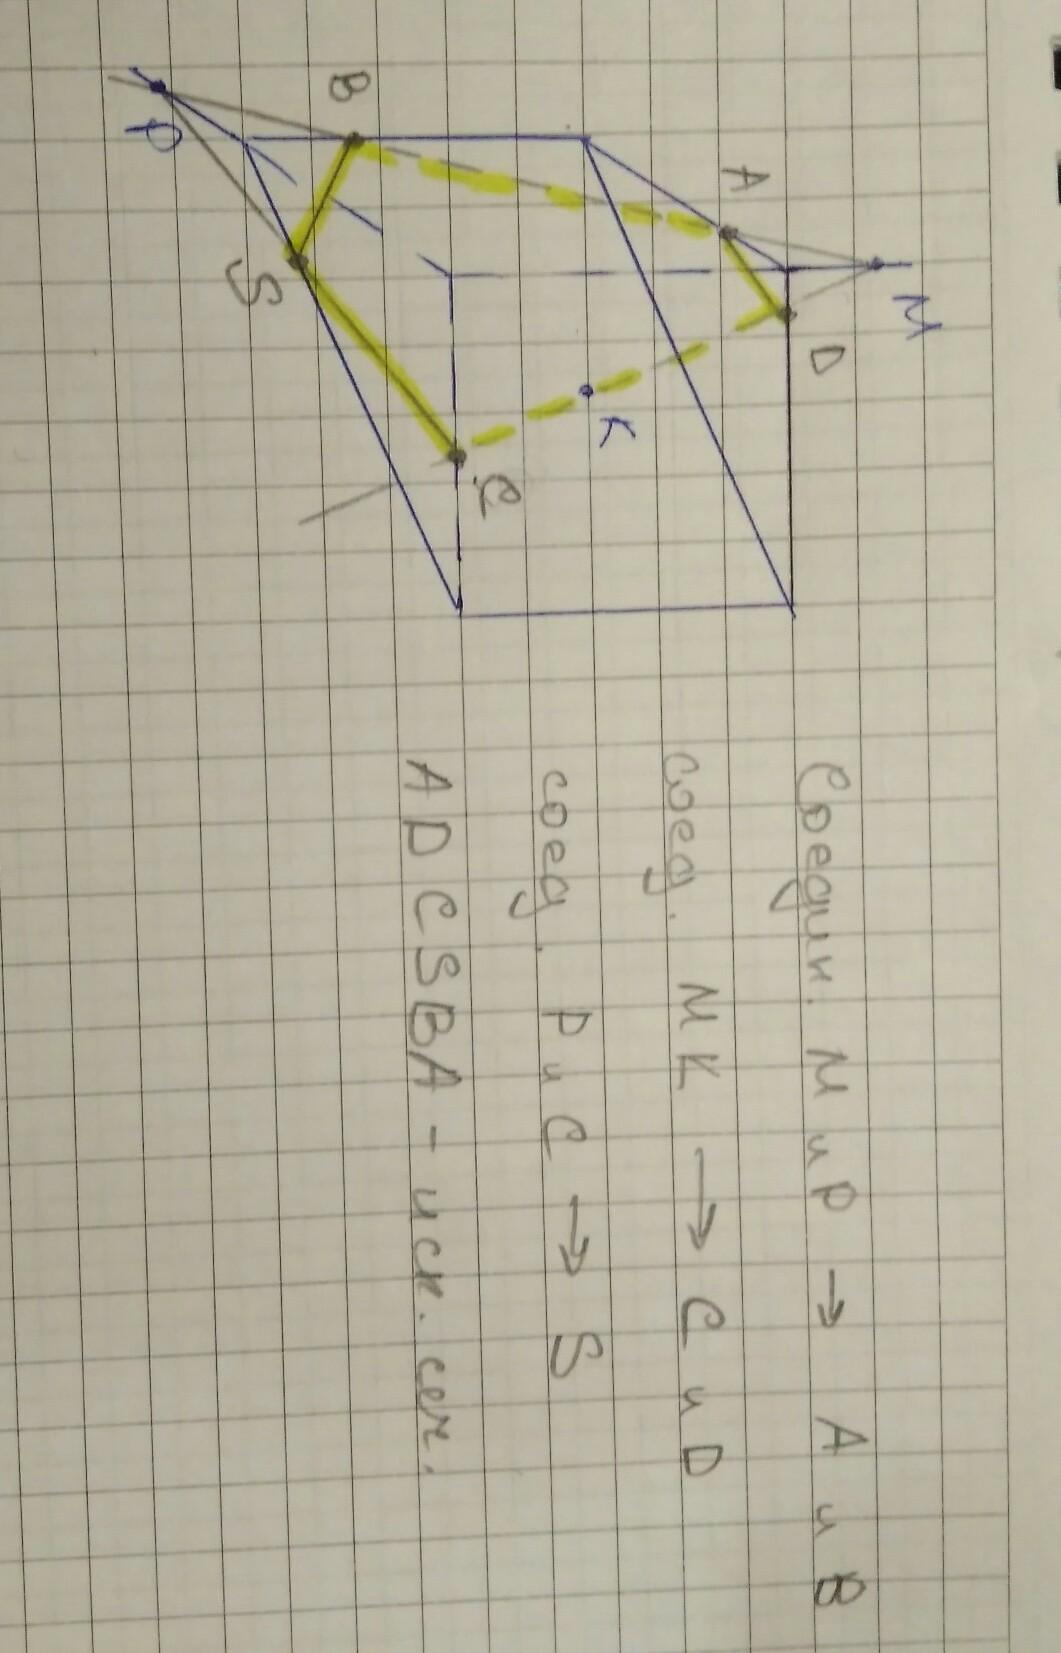 M
A
D
B
K
P
S
C
Соедин. М и Р → А и В
соед. МК → С и D
соед. Р и С → S
ADCSBA - иск. сеч.